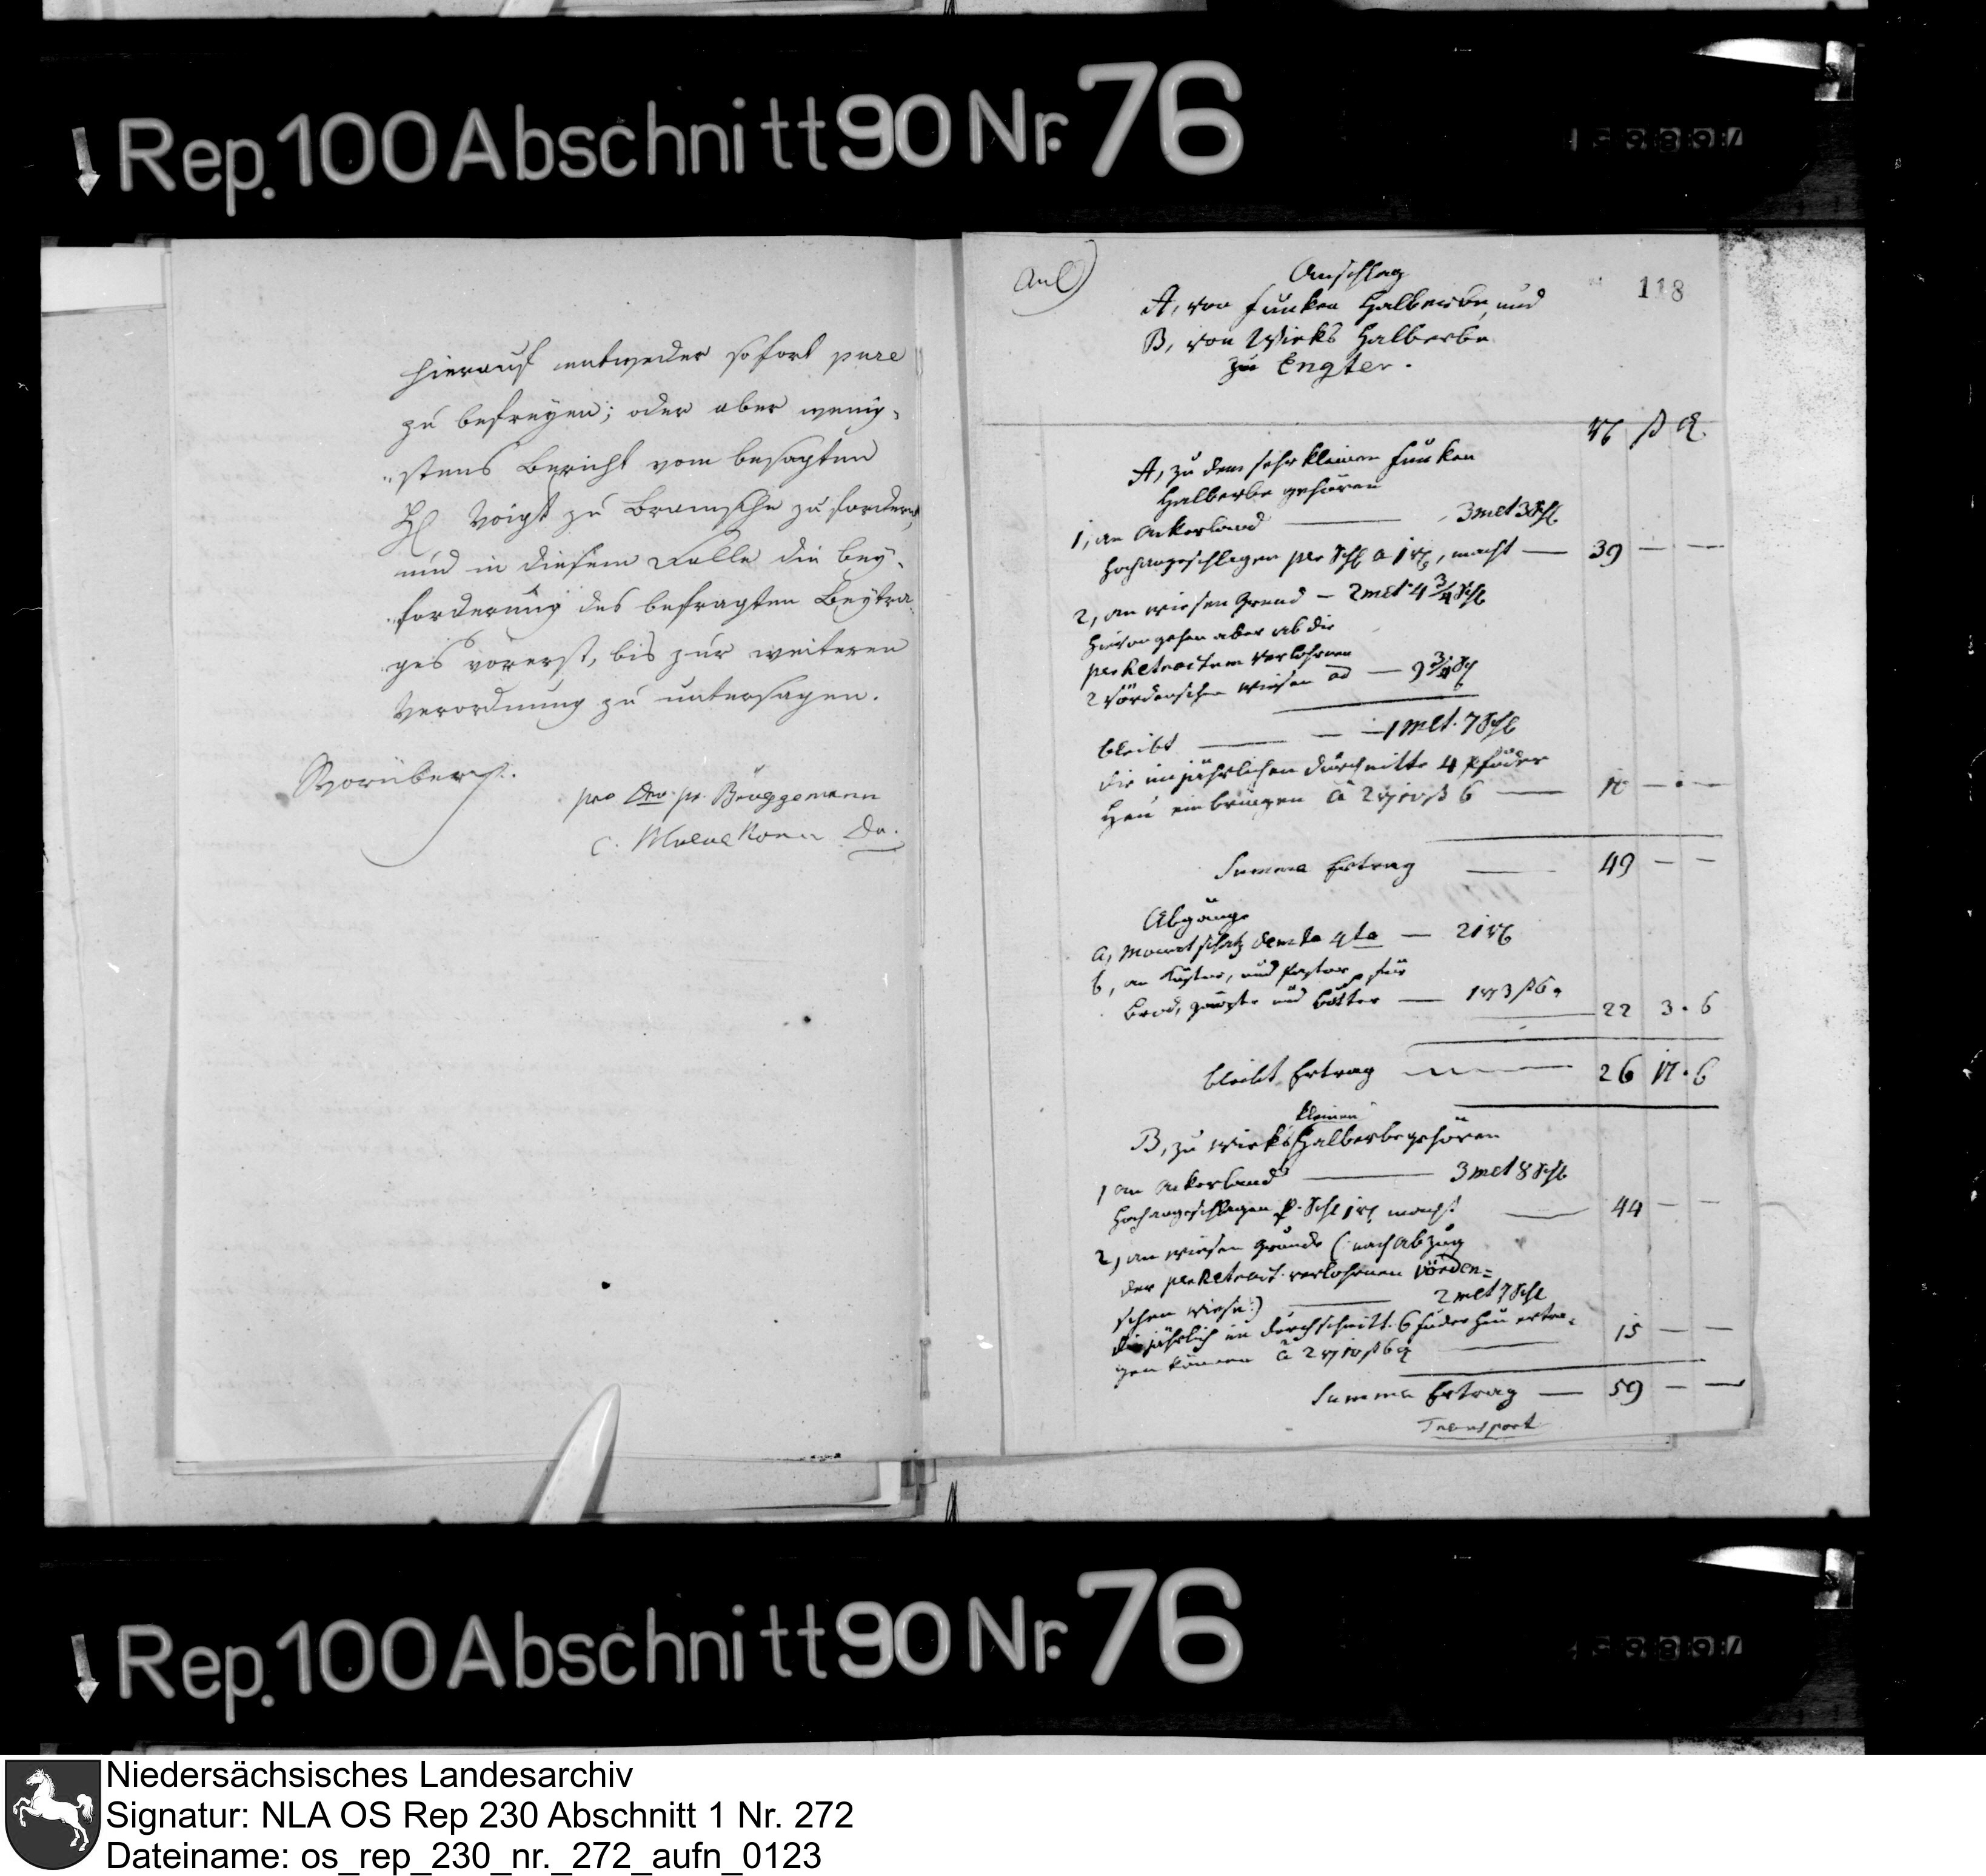 Rep. 100 Abschnitt 90 Nr. 76
hierauf entweder sofort pure
zu befreyen; oder aber wenig-
stens Bericht vom besagten
H. Voigt zu Bramsche zu fordern,
und in diesem Falle die Bey-
forderung des befragten Beytra-
ges vorerst, bis zur weiteren
Verordnung zu untersagen.
pro Dno. pr. Brüggemann
Anl)
118
Anschlag
A, von Funken Halberbe, und
B, von Wieks Halberbe
zu Engter.
rt ß d
A, zu dem sehr kleinen Funken
Halberbe gehören
1, an Ackerland — 3 mlt 3 Schl
Hochangeschlagen per Schl a 1 rt, macht — 39 — —
2, an Wiesen Grund — 2 mlt 4 3/4 Schl
hievon gehen aber ab die
per Retractum verlohrnen
2 Vördenschen Wiesen ad — 9 3/4 Schl
bleibt — — 1 mlt. 7 Schl
die im jährlichen Durchnitte 4 Fuder
Heu einbringen à 2 rt 10 ß 6 — 10 — —
Summa Ertrag — 49 — —
Abgänge
a, Monatschatz — 21 rt
b, an Küster, und Pastor für
Brod, und — 1 rt 3 ß 6 22 3. 6
bleibt Ertrag — 26 17. 6
B, zu Wieks kleinen Halberbe gehören
1 an Ackerland — 3 mlt 8 Schl
Hochangeschlagen p. Schl 1 rt macht — 44 — —
2, an Wiesen Grunde (: nach Abzug
der per Retract. verlohrnen Vörden=
schen Wiese :) — 2 mlt 7 Schl
die jährlich im Durchschnitt 6 Fuder Heu ertra-
gen können à 2 rt 10 ß 6 d — 15 — —
Summa Ertrag — 59 — —
Transport
Rep. 100 Abschnitt 90 Nr. 76
Niedersächsisches Landesarchiv
Signatur: NLA OS Rep 230 Abschnitt 1 Nr. 272
Dateiname: os_rep_230_nr._272_aufn_0123